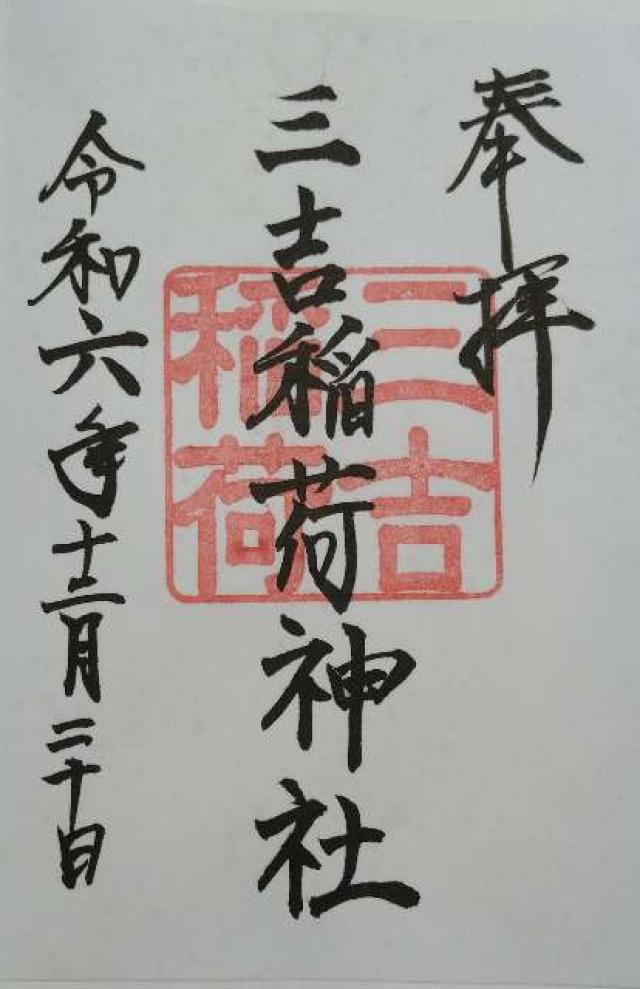 奉拝
三吉稲荷神社
三吉稲荷
令和六年十二月二十日